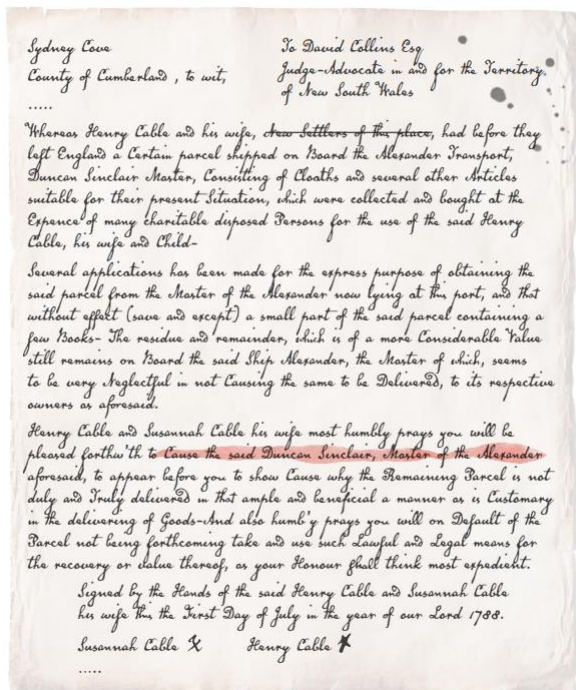 Sydney Cove
County of Cumberland, to wit,
.....
To David Collins Esq
Judge-Advocate in and for the Territory.
of New South Wales
Whereas Henry Cable and his wife, New Settlers of this place, had before they
left England a Certain parcel shipped on Board the Alexander Transport,
Duncan Sinclair Master, Consisting of Cloaths and several other Articles
suitable for their present Situation, which were collected and bought at the
Expence of many charitable disposed Persons for the use of the said Henry
Cable, his wife and Child-
Several applications has been made for the express purpose of obtaining the
said parcel from the Master of the Alexander now lying at this port, and that
without effect (save and except) a small part of the said parcel containing a
few Books- The residue and remainder, which is of a more Considerable Value
still remains on Board the said Ship Alexander, the Master of which, seems
to be very Neglectful in not Causing the same to be Delivered, to its respective
owners as aforesaid.
Henry Cable and Susannah Cable his wife most humbly prays you will be
pleased forthw'th to Cause the said Duncan Sinclair, Master of the Alexander
aforesaid, to appear before you to show Cause why the Remaining Parcel is not
duly and Truly delivered in that ample and beneficial a manner as is Customary
in the delivering of Goods-And also humb'y prays you will on Default of the
Parcel not being forthcoming take and use such Lawful and Legal means for
the recovery or value thereof, as your Honour shall think most expedient.
Signed by the Hands of the said Henry Cable and Susannah Cable
his wife this the First Day of July in the year of our Lord 1788.
Susannah Cable X Henry Cable X
.....